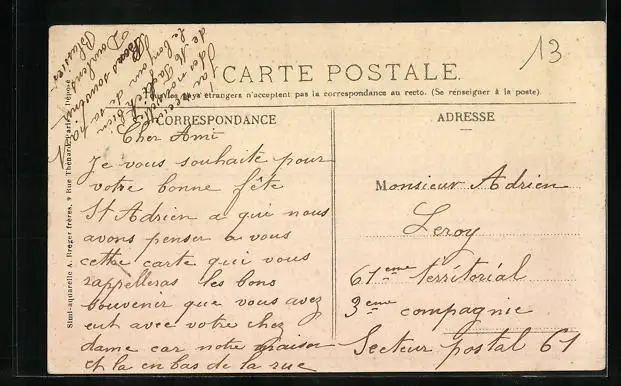 13
CARTE POSTALE.
Tous les pays étrangers n'acceptent pas la correspondance au recto. (Se renseigner à la poste).
CORRESPONDANCE
ADRESSE
Cher Ami
Je vous souhaite pour
votre bonne fête
St Adrien a qui nous
avons penser a vous
cette carte qui vous
rappelleras les bons
souvenir que vous avez
eut avec votre chez
dame car notre maison
et la en bas de la rue
Monsieur Adrien
Leroy
61eme territorial
3eme compagnie
Secteur postal 61
j'ai recu
des nouvelles
de
le bonjour
Bons souvenir
Simi-aquarelle A. Breger frères, 9 Rue Thénard, Paris. Déposé